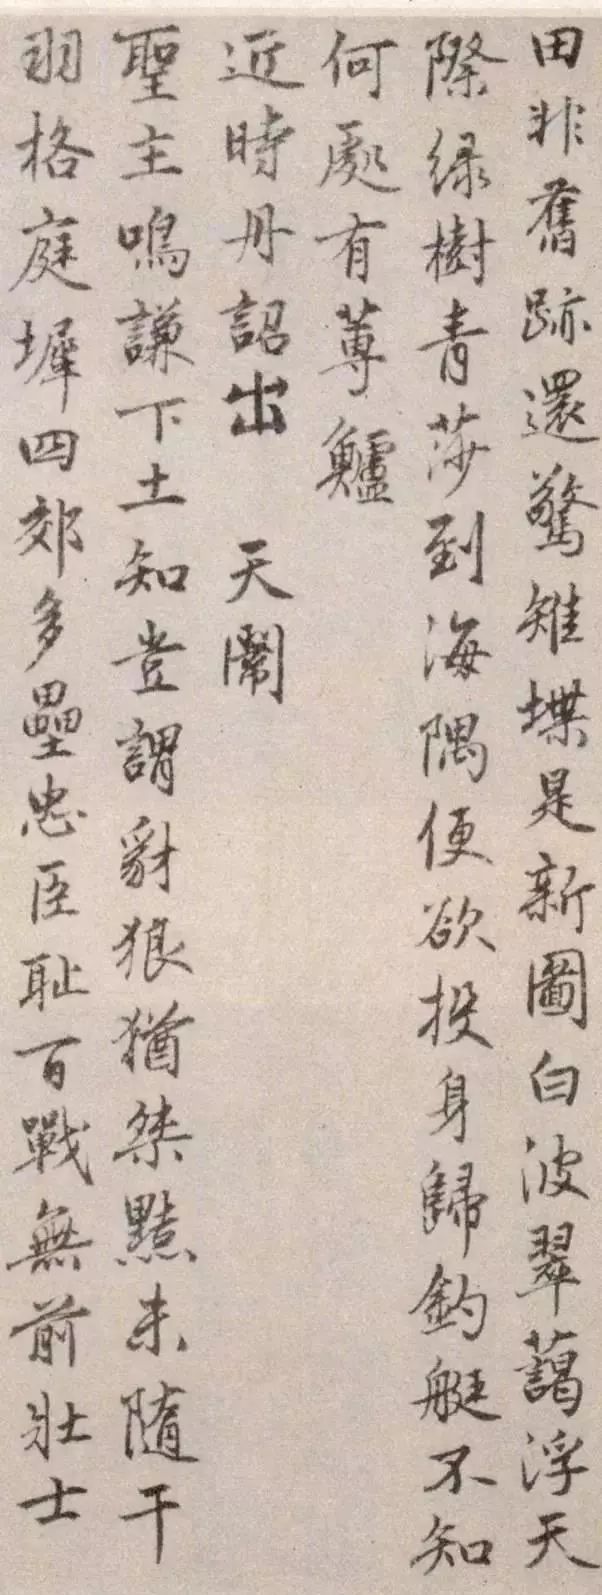 田非舊跡還驚雉堞是新圖白波翠藹浮天
際緑樹青莎到海隅便欲投身歸釣艇不知
何處有蓴鱸
近時丹詔出 天闈
聖主鳴謙下土知豈謂豺狼猶桀黠未隨干
羽格庭墀四郊多壘忠臣耻百戰無前壯士